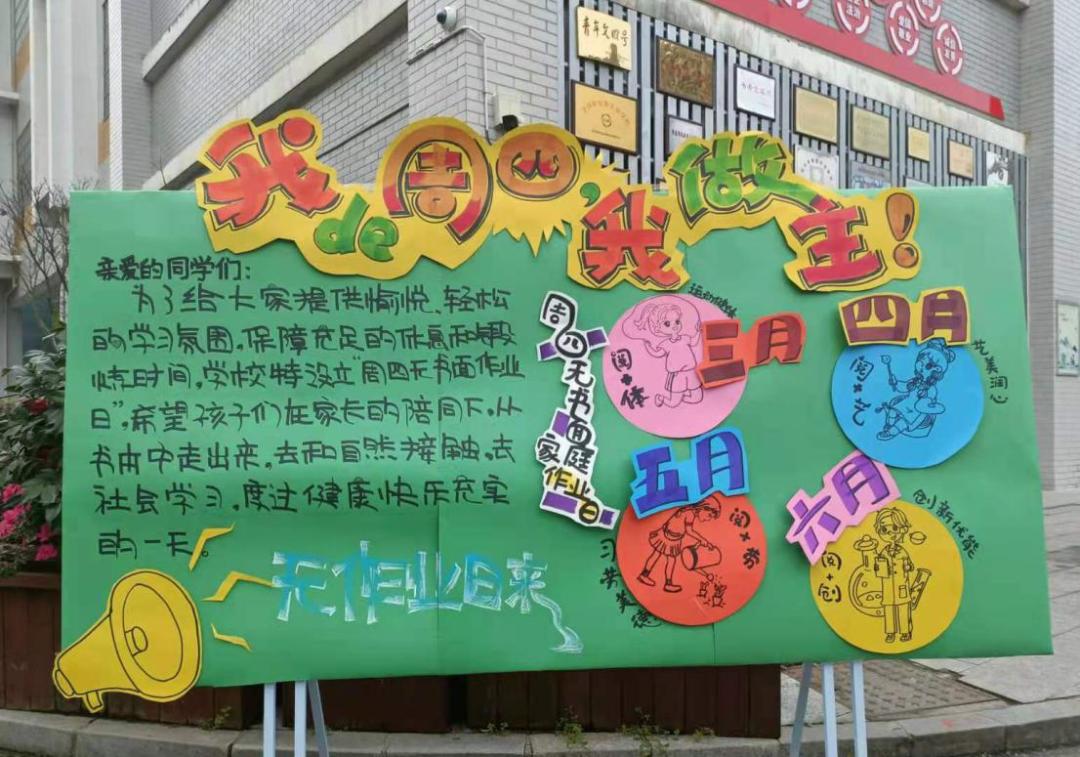 青年文明号
我de周四，我做主！
亲爱的同学们：
为了给大家提供愉悦、轻松
的学习氛围，保障充足的休息和锻
炼时间，学校特设立“周四无书面作业
日”，希望孩子们在家长的陪同下，从
书本中走出来，去和自然接触，去
社会学习，度过健康快乐充实
的一天。
无作业日来
周四无书面家庭作业日
三月
阅+体
运动健体
四月
阅×艺
艺美润心
五月
阅×劳
习劳美德
六月
阅+创
创新优能